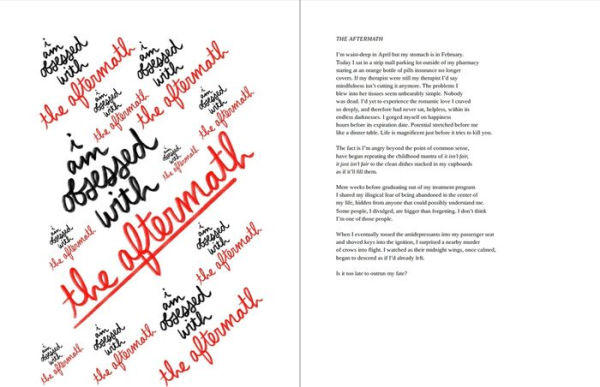 i
am
obsessed
with
the aftermath
i
am
obsessed
with
the aftermath
i
am
obsessed
with
the aftermath
i
am
obsessed
with
the aftermath
i
am
obsessed
with
the aftermath
i
am
obsessed
with
the aftermath
i
am
obsessed
with
the aftermath
i
am
obsessed
with
the aftermath
i
am
obsessed
with
the aftermath
i
am
obsessed
with
the aftermath
i
am
obsessed
with
the aftermath
THE AFTERMATH
I'm waist-deep in April but my stomach is in February.
Today I sat in a strip mall parking lot outside of my pharmacy
staring at an orange bottle of pills insurance no longer
covers. If my therapist were still my therapist I'd say
mindfulness isn't cutting it anymore. The problems I
blew into her tissues seem unbearably simple. Nobody
was dead. I'd yet to experience the romantic love I craved
so deeply, and therefore had never sat, helpless, within its
endless darknesses. I gorged myself on happiness
hours before its expiration date. Potential stretched before me
like a dinner table. Life is magnificent just before it tries to kill you.
The fact is I'm angry beyond the point of common sense,
have begun repeating the childhood mantra of it isn't fair,
it just isn't fair to the clean dishes stacked in my cupboards
as if it'll fill them.
Mere weeks before graduating out of my treatment program
I shared my illogical fear of being abandoned in the center of
my life, hidden from anyone that could possibly understand me.
Some people, I divulged, are bigger than forgetting. I don't think
I'm one of those people.
When I eventually tossed the antidepressants into my passenger seat
and shoved keys into the ignition, I surprised a nearby murder
of crows into flight. I watched as their midnight wings, once calmed,
began to descend as if I'd already left.
Is it too late to outrun my fate?